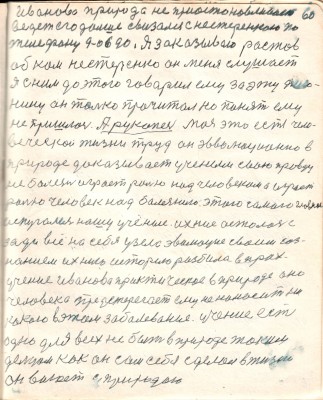 60
Иванова природа не приостанавливает
ведет его дальше связался с нестеренком по
телефону 9-06 90. Я заказываю ростов
обком нестеренко он меня слушает
Я с ним до этого говорил ему за эту
нину он только прочитал но понять ему
не пришлось. А рукопись моя это есть чело-
веческой жизни труд он эволюционно в
природе доказывает ученым свою правду
не болезн играет ролю над человеком а играет
ролю человек над болезнею. этого самого
испугалса нашу учение. их
зади всё на себя узяло эволюцие своим соз-
нанием их историю разбила в прах.
учение Иванова практическое в природе оно
человека предостерегает ему не наносит ни
какого в этом заболевание. учение есть
одно для всех не быть в природе таким
делцом как он сам себя сделал в жизни
он воюет с природою